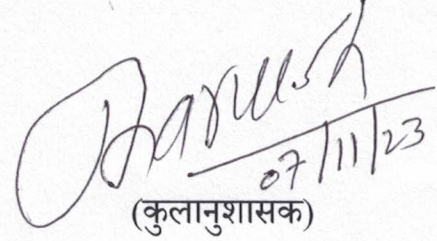 07/11/23
(कुलानुशासक)